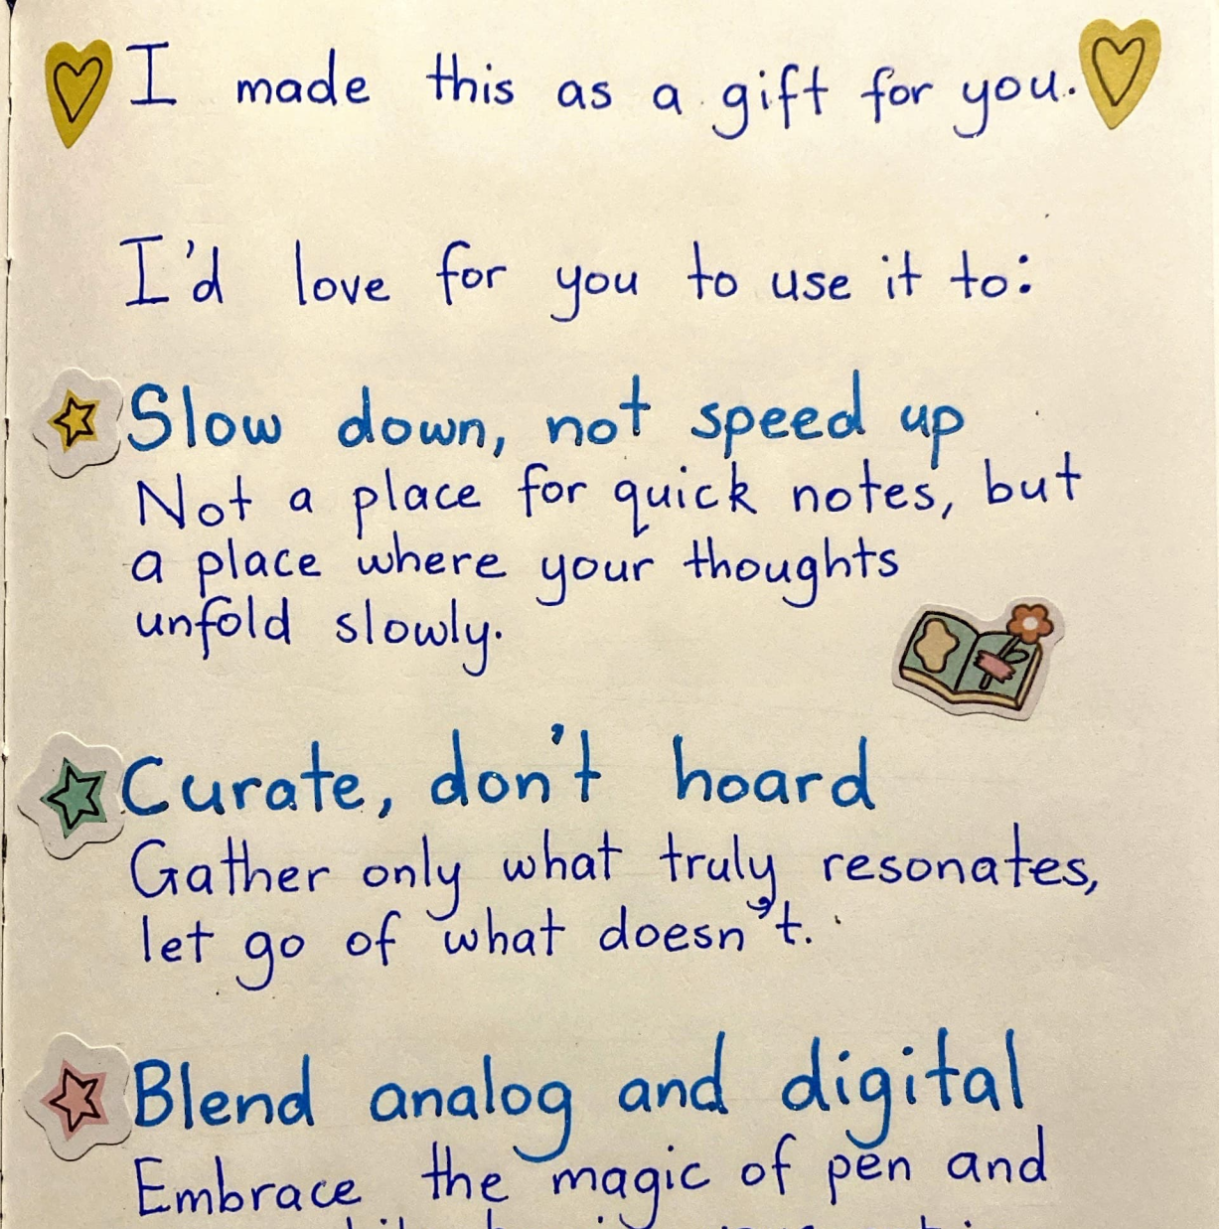 I made this as a gift for you.
I'd love for you to use it to:
Slow down, not speed up
Not a place for quick notes, but
a place where your thoughts
unfold slowly.
Curate, don't hoard
Gather only what truly resonates,
let go of what doesn't.
Blend analog and digital
Embrace the magic of pen and